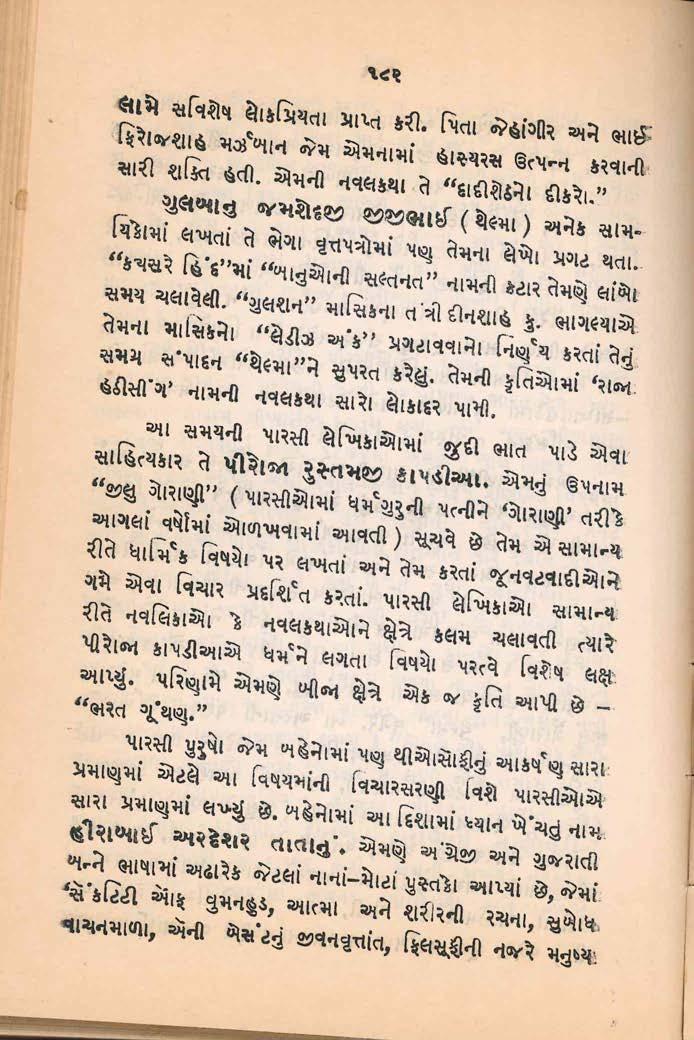 ૧૮૨
લામે સવિશેષ લોકપ્રિયતા પ્રાપ્ત કરી. પિતા જેહાંગીર અને ભાઈ
ફિરોજશાહ મર્ઝબાન જેમ એમનામાં હાસ્યરસ ઉત્પન્ન કરવાની
સારી શક્તિ હતી. એમની નવલકથા તે “દાદીશેઠનો દીકરો.”
ગુલબાનુ જમશેદજી જીજીભાઈ ( થેલ્મા ) અનેક સામ-
યિકોમાં લખતાં તે ભેગા વૃત્તપત્રોમાં પણ તેમના લેખો પ્રગટ થતા.
“કયસરે હિંદ”માં “બાનુઓની સલ્તનત” નામની કટાર તેમણે લાંબો
સમય ચલાવેલી. “ગુલશન” માસિકના તંત્રી દીનશાહ કુ. ભાગલ્યાએ
તેમના માસિકનો “લેડીઝ અંક” પ્રગટાવવાનો નિર્ણય કરતાં તેનું
સમગ્ર સંપાદન “થેલ્મા”ને સુપરત કરેલું. તેમની કૃતિઓમાં ‘રાજા
હઠીસીંગ’ નામની નવલકથા સારો લોકાદર પામી.
આ સમયની પારસી લેખિકાઓમાં જુદી ભાત પાડે એવા
સાહિત્યકાર તે પીરોજા રુસ્તમજી કાપડીઆ. એમનું ઉપનામ
“જીલુ ગોરાણી” ( પારસીઓમાં ધર્મગુરુની પત્નીને ‘ગોરાણી’ તરીકે
આગલાં વર્ષોમાં ઓળખવામાં આવતી ) સૂચવે છે તેમ એ સામાન્ય
રીતે ધાર્મિક વિષયો પર લખતાં અને તેમ કરતાં જૂનવટવાદીઓને
ગમે એવા વિચાર પ્રદર્શિત કરતાં. પારસી લેખિકાઓ સામાન્ય
રીતે નવલિકાઓ કે નવલકથાઓને ક્ષેત્રે કલમ ચલાવતી ત્યારે
પીરોજા કાપડીઆએ ધર્મને લગતા વિષયો પરત્વે વિશેષ લક્ષ
આપ્યું. પરિણામે એમણે બીજા ક્ષેત્રે એક જ કૃતિ આપી છે –
“ભરત ગૂંથણ.”
પારસી પુરુષો જેમ બહેનોમાં પણ થીઓસોફીનું આકર્ષણ સારા
પ્રમાણમાં એટલે આ વિષયમાંની વિચારસરણી વિશે પારસીઓએ
સારા પ્રમાણમાં લખ્યું છે. બહેનોમાં આ દિશામાં ધ્યાન ખેંચતું નામ
હીરાબાઈ અરદેશર તાતાનું. એમણે અંગ્રેજી અને ગુજરાતી
બન્ને ભાષામાં અઢારેક જેટલાં નાનાં–મોટાં પુસ્તકો આપ્યાં છે, જેમાં
‘સેંકટિટી ઑફ વુમનહુડ, આત્મા અને શરીરની રચના, સુબોધ
વાચનમાળા, ઍની બેસંટનું જીવનવૃત્તાંત, ફિલસૂફીની નજરે મનુષ્ય